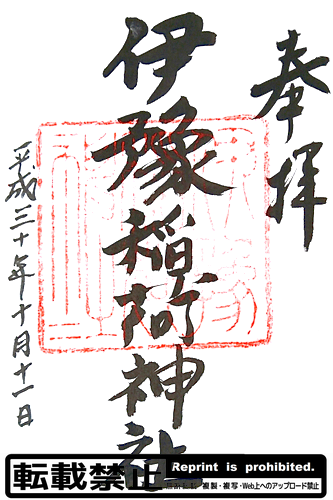 奉拝
伊豫稲荷神社
平成三十年十月十一日
転載禁止
Reprint is prohibited.
複製・複写・Web上へのアップロード禁止